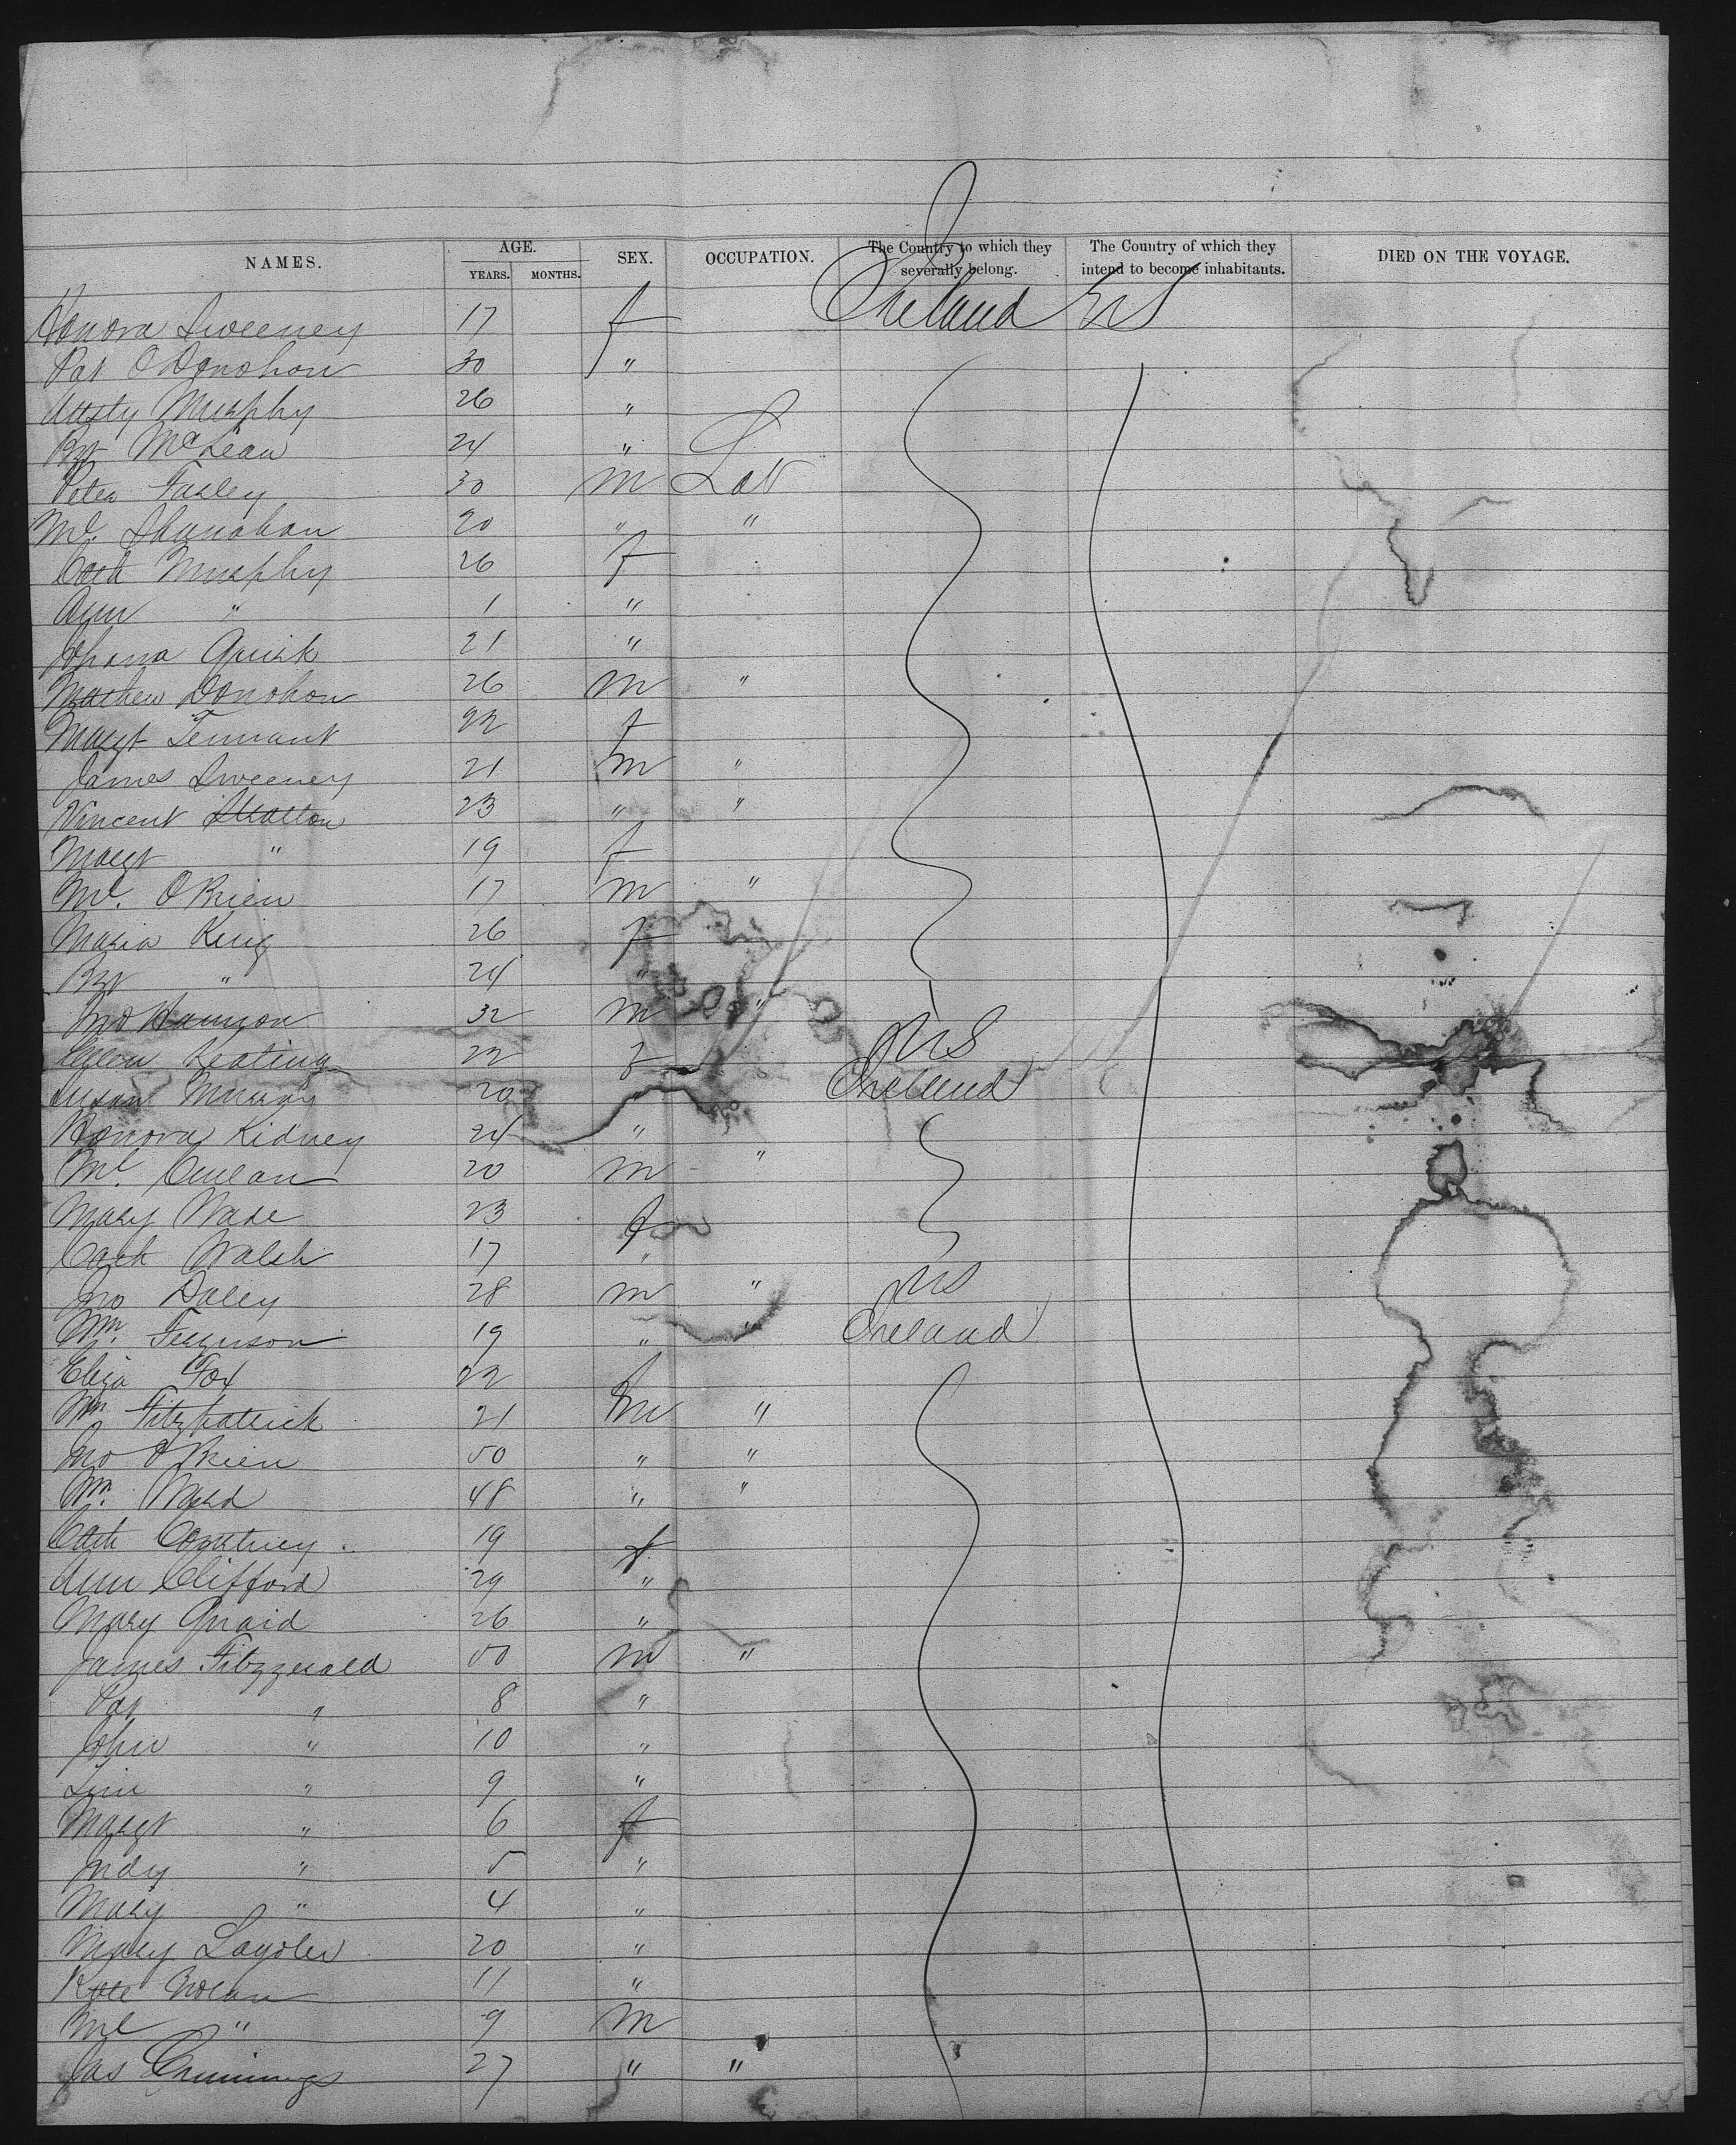 NAMES. AGE. SEX. OCCUPATION. The Country to which they severally belong. The Country of which they intend to become inhabitants. DIED ON THE VOYAGE.
YEARS. MONTHS.
Honora Sweeney 17 f Ireland US
Pat O Donohou 30 "
Murphy 26 "
Bgt McLean 24 "
Peter Farley 30 m Lab
Ml. Shanahan 20 " "
Cath Murphy 26 f
Ann " 1 "
Johana Quirk 21 "
Mathew Donohou 26 m "
Margt Tennant 22 f
James Sweeney 21 m "
Vincent Stratton 23 " "
Margt " 19 f
Ml. O Brien 17 m "
Maria King 26 f
Bgt " 24 "
Jno Hannon 32 m "
Ellen Keating 22 f US
Susan Murray 20 " Ireland
Honora Kidney 24 "
Ml. 20 m "
Mary Wade 23 f
Cath Walsh 17 "
Jno Daley 28 m " US
Wm. Ferguson 19 " " Ireland
Eliza Fox 22 f
Wm Fitzpatrick 21 m "
Jno O Brien 50 " "
Wm. Ward 48 " "
Cath Cortney 19 f
Ann Clifford 29 "
Mary Quaid 26 "
James Fitzgerald 50 m "
Pat " 8 "
John " 10 "
" 9 "
Margt " 6 f
Judy " 5 "
Mary " 4 "
Mary 20 "
Kate Nolan 11 "
Ml " 9 m
Jas Cummings 27 " "